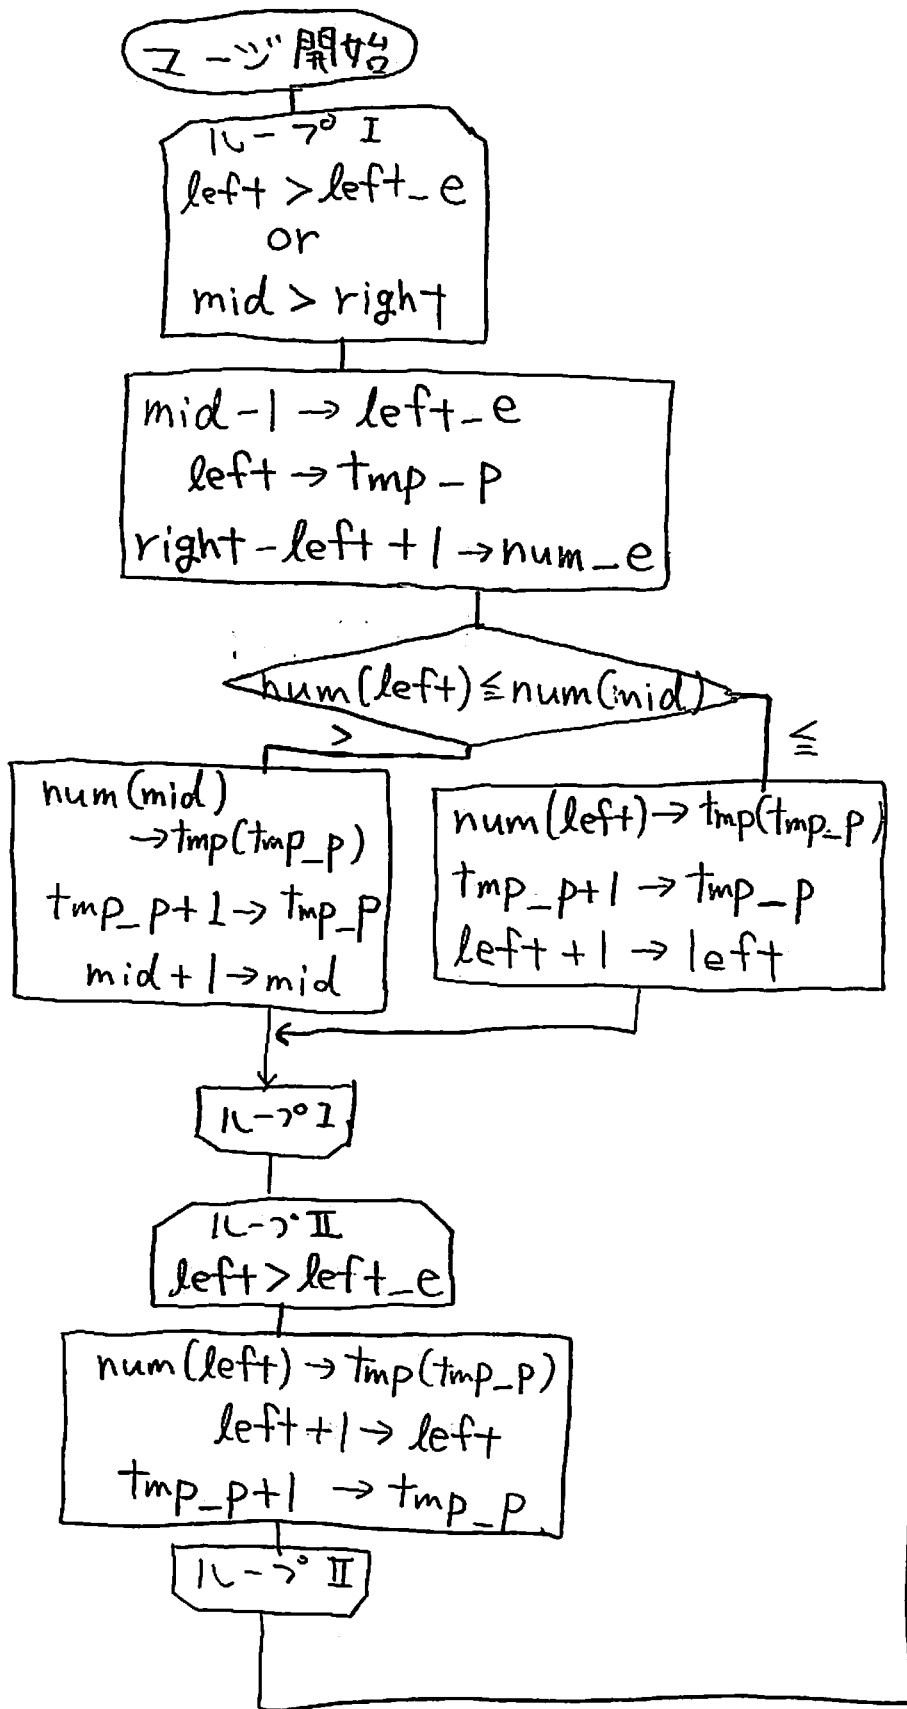 マージ開始
ループ I
left > left_e
or
mid > right
mid-1→left_e
left→tmp_p
right-left+1→num_e
num(left)≦num(mid)
>
≦
num(mid)
→tmp(tmp_p)
tmp_p+1→tmp_p
mid+1→mid
num(left)→tmp(tmp_p)
tmp_p+1→tmp_p
left+1→left
ループ I
ループ II
left>left_e
num(left)→tmp(tmp_p)
left+1→left
tmp_p+1→tmp_p
ループ II